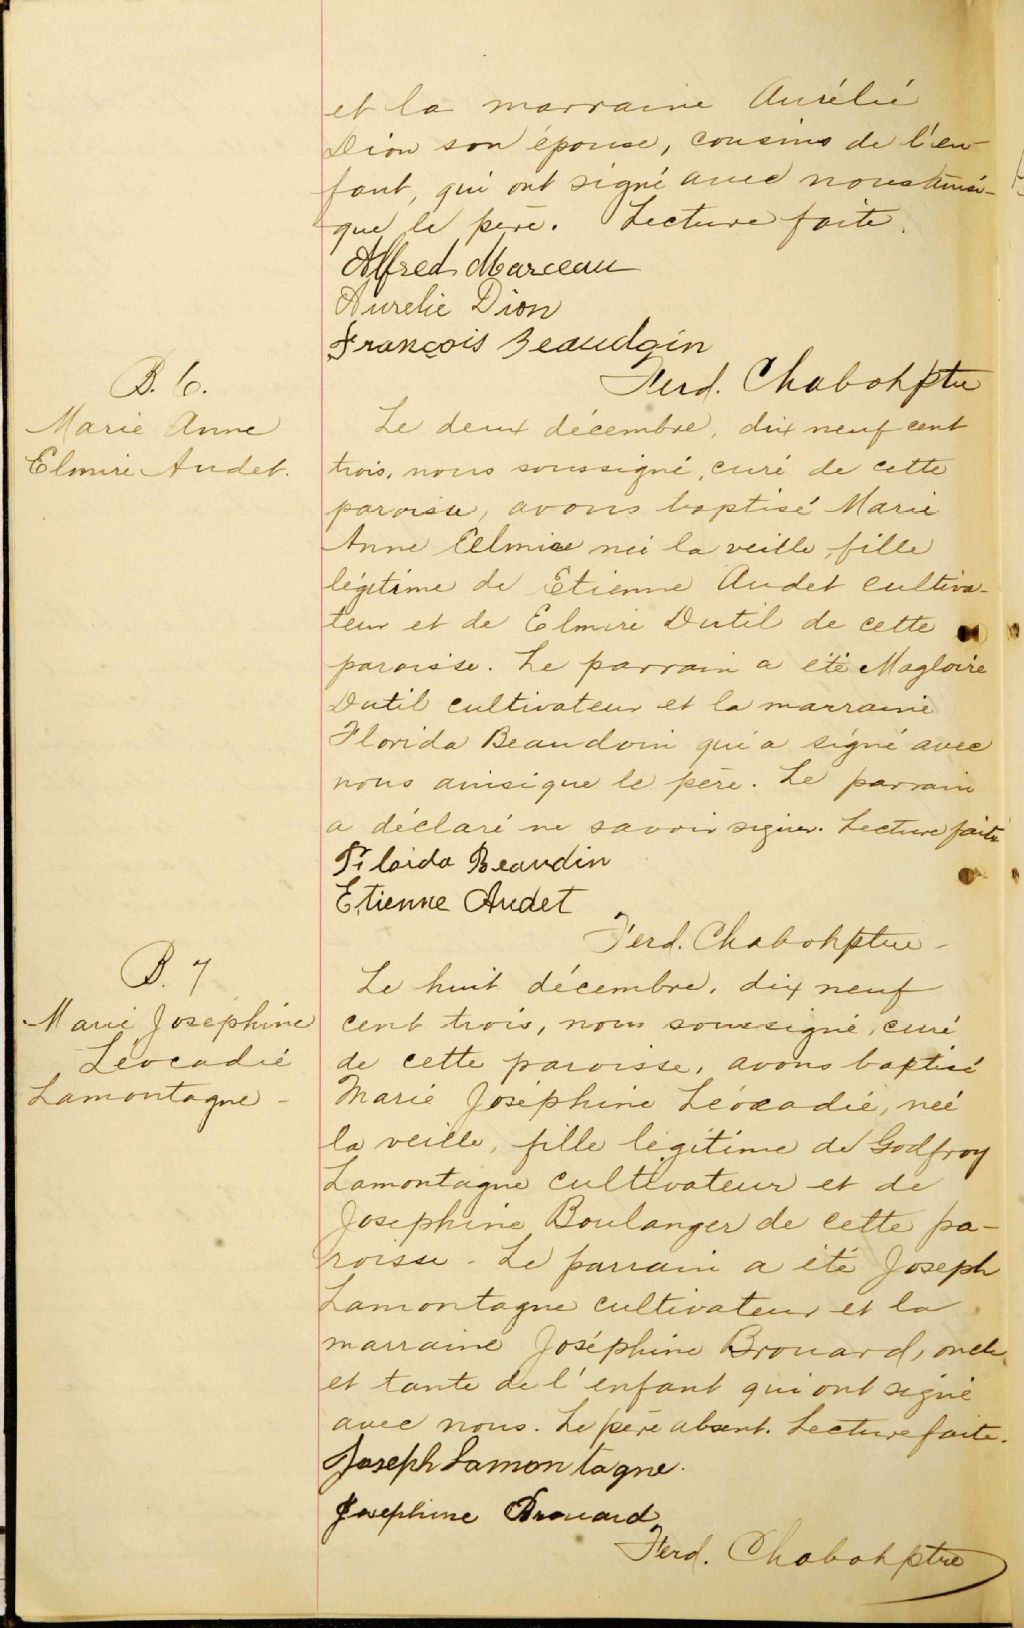 et la marraine Aurélie
Dion son épouse, cousins de l'en-
fant, qui ont signé avec nous ainsi-
que le père. Lecture faite.
Alfred Marceau
Aurelie Dion
François Beaudoin
Ferd. Chabot ptre
B. 6.
Marie Anne
Elmire Audet.
Le deux décembre, dix neuf cent
trois, nous soussigné, curé de cette
paroisse, avons baptisé Marie
Anne Elmire née la veille, fille
légitime de Etienne Audet cultiva-
teur et de Elmire Dutil de cette
paroisse. Le parrain a été Magloire
Dutil cultivateur et la marraine
Florida Beaudoin qui a signé avec
nous ainsi que le père. Le parrain
a déclaré ne savoir signer. Lecture faite
Beaudin
Etienne Audet
Ferd. Chabot ptre -
B. 7
Marie Joséphine
Léocadie
Lamontagne -
Le huit décembre, dix neuf
cent trois, nous soussigné, curé
de cette paroisse, avons baptisé
Marie Joséphine Léocadie, née
la veille, fille légitime de Godfroy
Lamontagne cultivateur et de
Josephine Boulanger de cette pa-
roisse - Le parrain a été Joseph
Lamontagne cultivateur et la
marraine Joséphine Brouard, oncle
et tante de l'enfant qui ont signé
avec nous. Le père absent. Lecture faite.
Joseph Lamontagne.
Josephine Brouard
Ferd. Chabot ptre